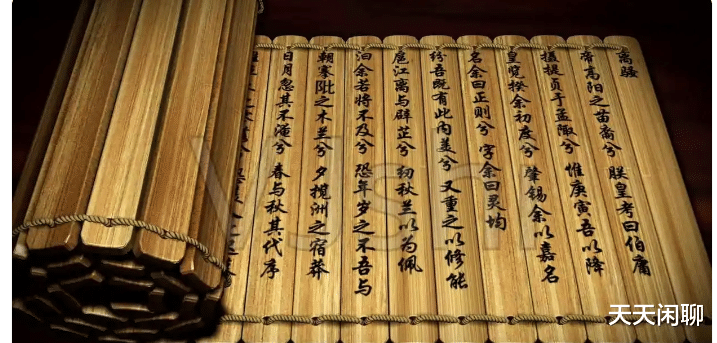 离骚
帝高阳之苗裔兮 朕皇考曰伯庸
摄提贞于孟陬兮 惟庚寅吾以降
皇览揆余初度兮 肇锡余以嘉名
名余曰正则兮 字余曰灵均
纷吾既有此内美兮 又重之以修能
扈江离与辟芷兮 纫秋兰以为佩
汩余若将不及兮 恐年岁之不吾与
朝搴阰之木兰兮 夕揽洲之宿莽
日月忽其不淹兮 春与秋其代序
天天闲聊